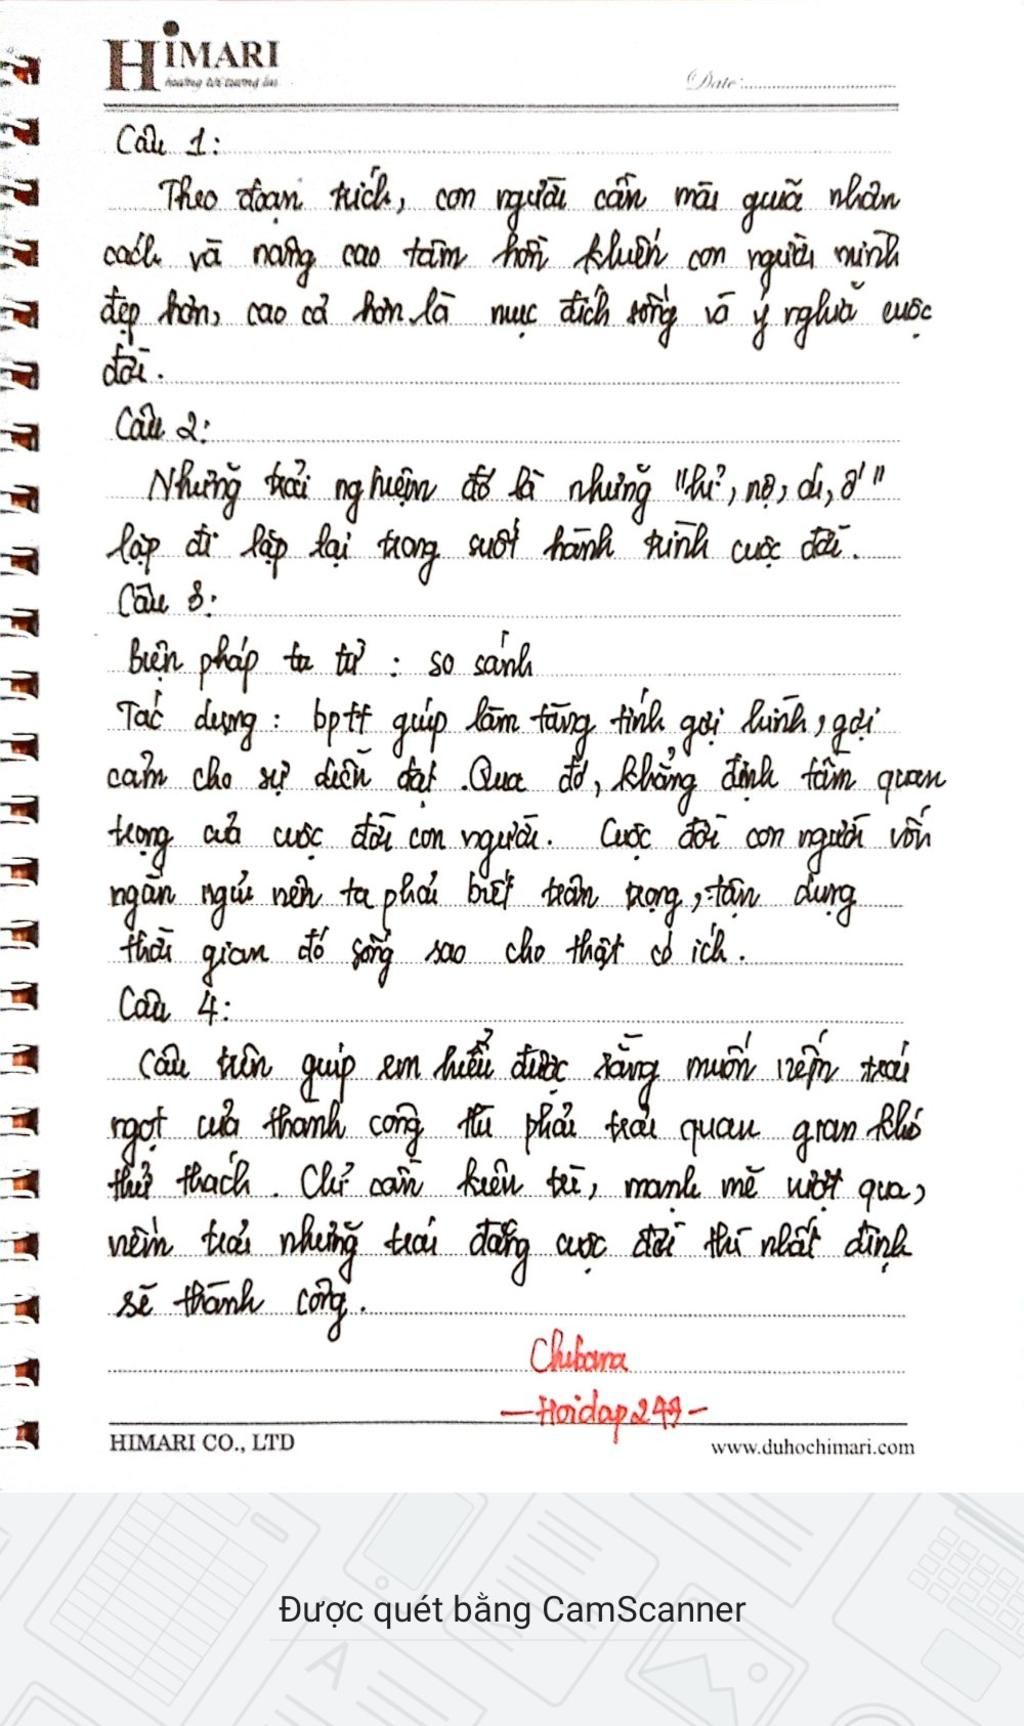 HIMARI
hướng tới tương lai
Date:
Câu 1:
Theo đoạn trích, con người cần mài giũa nhân
cách và nâng cao tâm hồn khiến con người mình
đẹp hơn, cao cả hơn là mục đích sống và ý nghĩa cuộc
đời.
Câu 2:
Những trải nghiệm đó là những "hỉ, nộ, ái, ố"
lặp đi lặp lại trong suốt hành trình cuộc đời.
Câu 3:
Biện pháp tu từ : so sánh
Tác dụng : bptt giúp làm tăng tính gợi hình, gợi
cảm cho sự diễn đạt. Qua đó, khẳng định tầm quan
trọng của cuộc đời con người. Cuộc đời con người vốn
ngắn ngủi nên ta phải biết trân trọng, tận dụng
thời gian đó sống sao cho thật có ích.
Câu 4:
Câu trên giúp em hiểu được rằng muốn nếm trái
ngọt của thành công thì phải trải qua gian khó
thử thách. Chỉ cần kiên trì, mạnh mẽ vượt qua,
nếm trải những trái đắng cuộc đời thì nhất định
sẽ thành công.
Chibana
-Hoidap247-
HIMARI CO., LTD
www.duhochimari.com
Được quét bằng CamScanner